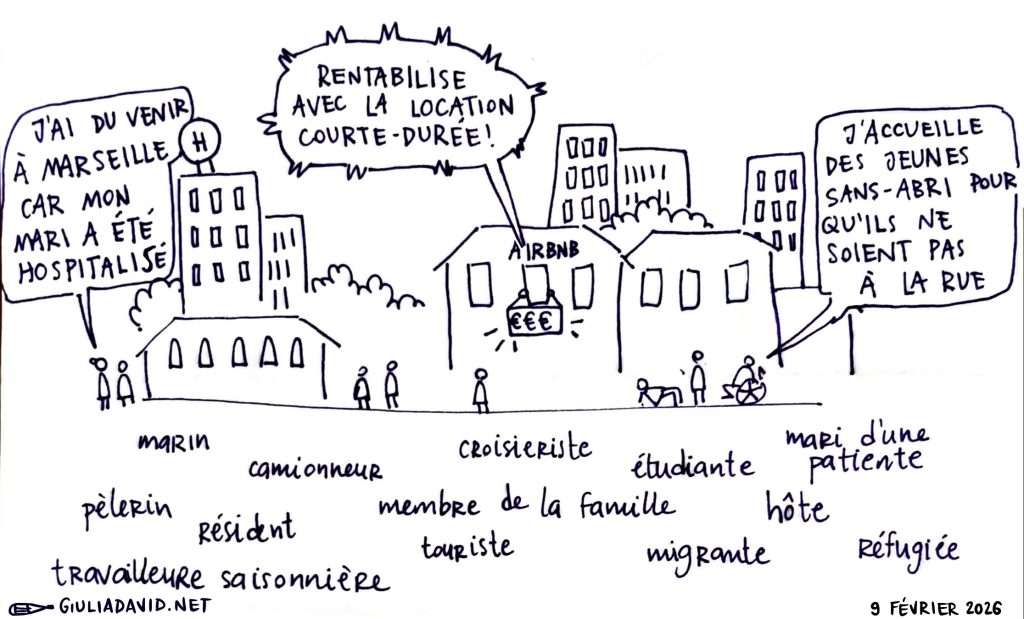 J'AI DU VENIR
À MARSEILLE
CAR MON
MARI A ÉTÉ
HOSPITALISÉ
H
RENTABILISE
AVEC LA LOCATION
COURTE-DURÉE!
AIRBNB
€€€
J'ACCUEILLE
DES JEUNES
SANS-ABRI POUR
QU'ILS NE
SOIENT PAS
À LA RUE
marin
camionneur
croisieriste
étudiante
mari d'une
patiente
pèlerin
Résident
membre de la famille
hôte
touriste
migrante
Réfugiée
travailleure saisonnière
GIULIADAVID.NET
9 FÉVRIER 2026